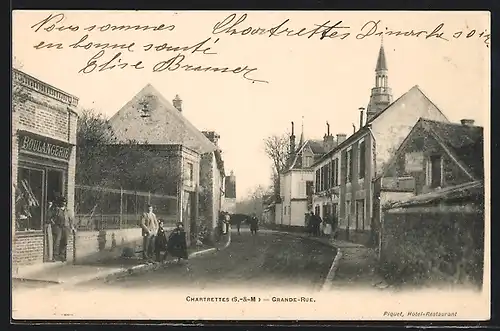 Nous sommes
en bonne santé
Elise Bramer
Chartrettes Dimanche soir
BOULANGERIE
CHARTRETTES (S.-&-M.) — GRANDE-RUE.
Piquet, Hotel-Restaurant